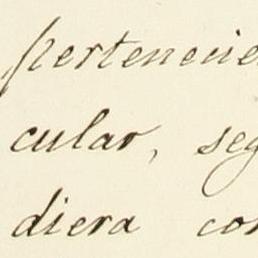 pertenecie
cular, seg
diera con